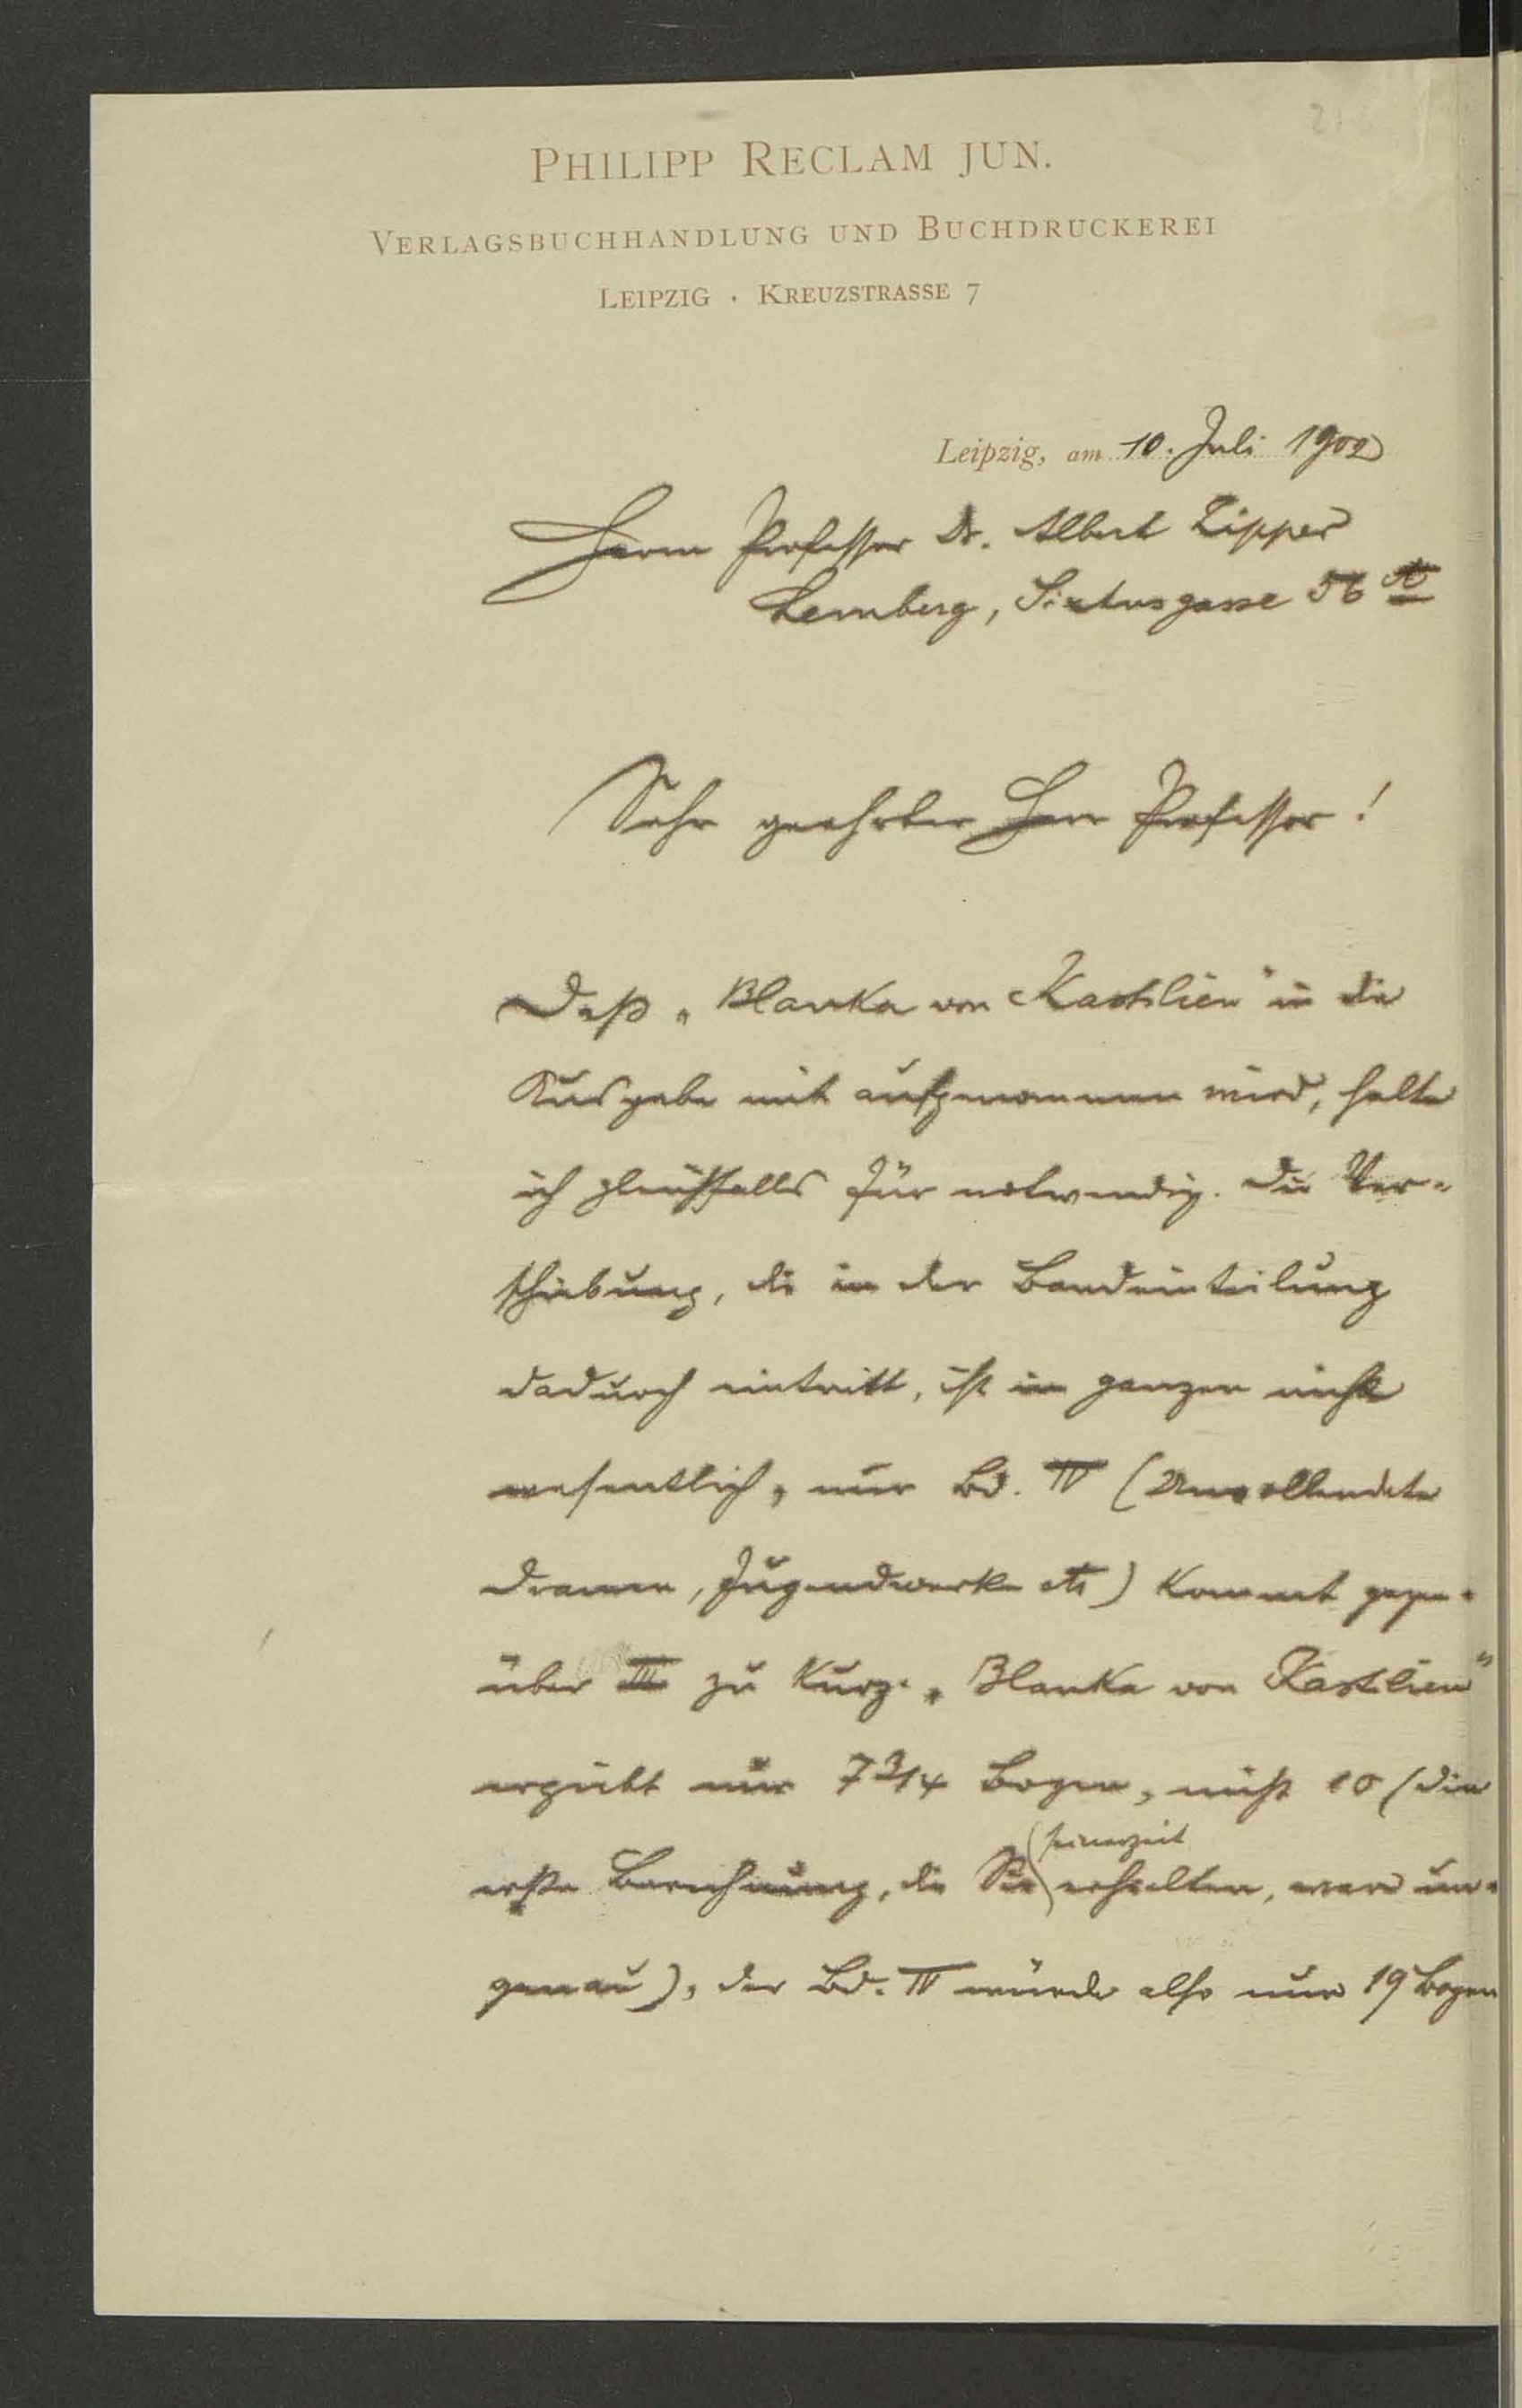 PHILIPP RECLAM JUN.
VERLAGSBUCHHANDLUNG UND BUCHDRUCKEREI
LEIPZIG · KREUZSTRASSE 7
Leipzig, am 10. Juli 1902
Herrn Professor Dr. Albert Zipper
Lemberg, Sixtusgasse 56 A
Sehr geehrter Herr Professor!
Daß „Blanka von Kastilien" in die
Ausgabe mit aufgenommen wird, halte
ich gleichfalls für notwendig. Die Ver-
schiebung, die in der Bandeinteilung
dadurch eintritt, ist im ganzen nicht
wesentlich, nur Bd. IV (Unvollendete
Dramen, Jugendwerke etc) kommt gegen-
über III zu kurz. „Blanka von Kastilien"
ergiebt nur 7 3/4 Bogen, nicht 10 (die
erste Berechnung, die Sie seinerzeit erhielten, war un-
genau), der Bd. IV würde also nur 19 Bogen